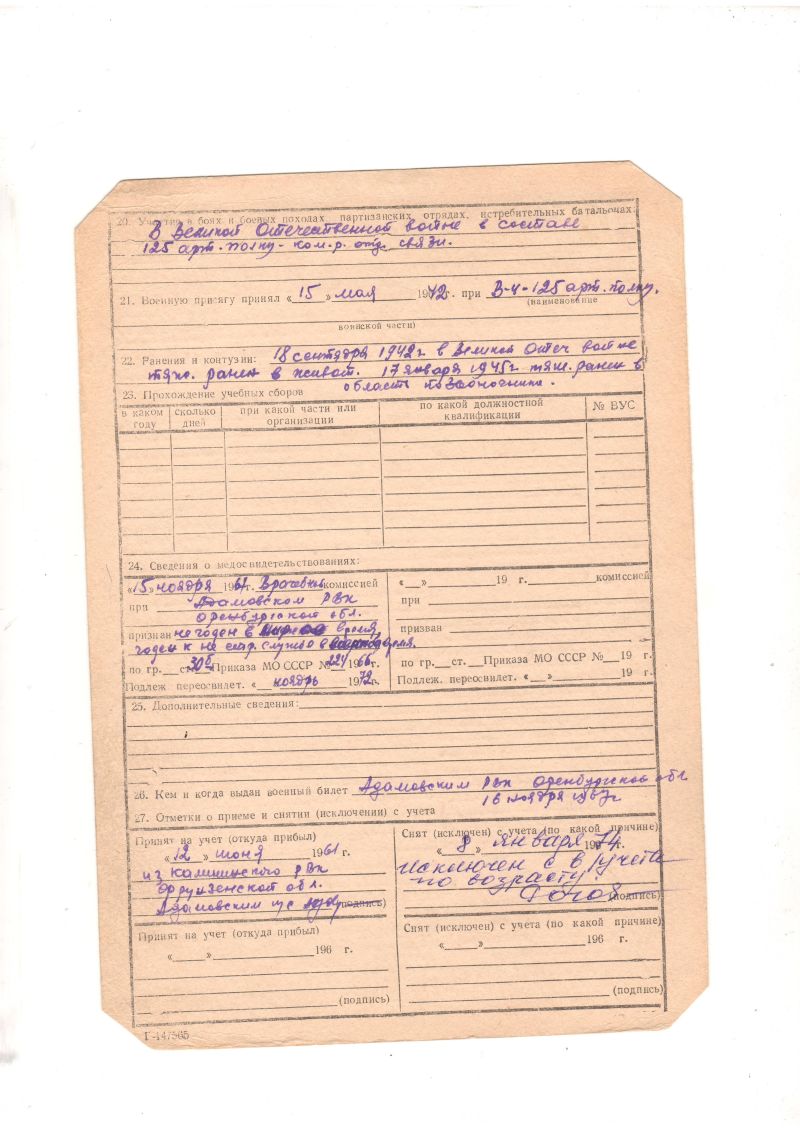 20. Участие в боях и боевых походах, партизанских отрядах, истребительных батальонах:
В Великой Отечественной войне в составе
125 арт. полку - ком. р. отд. связи.
21. Военную присягу принял «15» мая 1942 г. при В-ч-125 арт. полку.
(наименование
воинской части)
22. Ранения и контузии: 18 сентября 1942 г. в Великой Отеч войне
тяж. ранен в живот. 17 января 1945 г. тяж. ранен в
область позвоночника.
23. Прохождение учебных сборов
в каком году | сколько дней | при какой части или организации | по какой должностной квалификации | № ВУС
24. Сведения о медосвидетельствованиях:
«15» ноября 1967 г. Врачебной комиссией
при Адамовском РВК
Оренбургской обл.
признан не годен в мирное время,
годен к не стр. службе в военное время.
по гр. ст. 30б Приказа МО СССР № 224 1966 г.
Подлеж. переосвилет. « ноябрь 1972 г.
« » 19 г. комиссией
при
призван
по гр. ст. Приказа МО СССР № 19 г.
Подлеж. переосвилет. « » 19 г.
25. Дополнительные сведения:
26. Кем и когда выдан военный билет Адамовским РВК Оренбургской обл
16 ноября 1967 г
27. Отметки о приеме и снятии (исключении) с учета
Принят на учет (откуда прибыл)
«12» июня 1961 г.
из Калининского РВК
Фрунзенской обл.
Адамовским (подпись)
Снят (исключен) с учета (по какой причине)
«8» января 1974
Исключен с в/учета
по возрасту
(подпись)
Принят на учет (откуда прибыл)
« » 196 г.
(подпись)
Снят (исключен) с учета (по какой причине)
« » 196 г.
(подпись)
Г-147565